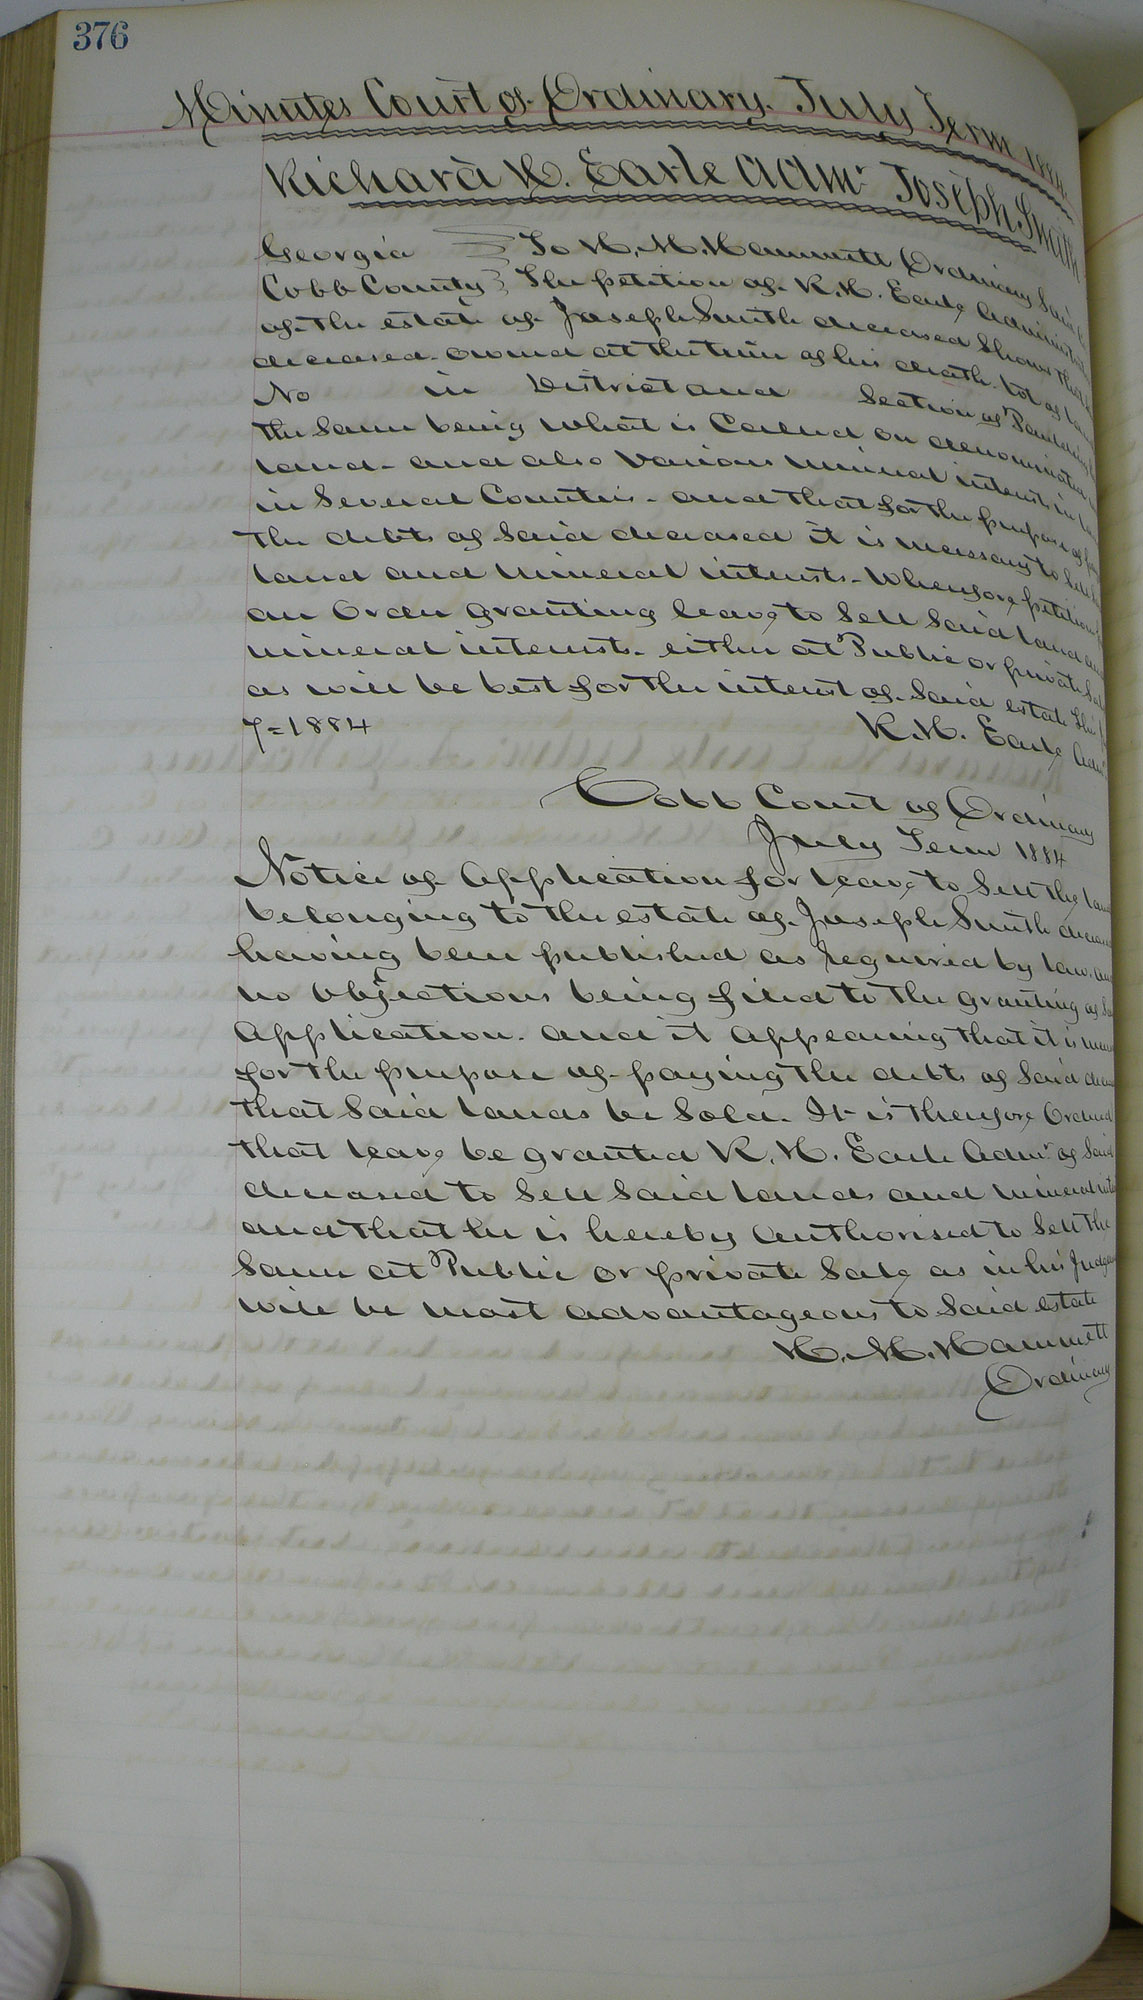 376
Minutes Court of Ordinary. July Term 1884.
Richard H. Earle Adm.r Joseph Smith
Georgia } To H. M. Hammett Ordinary Said
Cobb County } The petition of R. H. Earle Administrat
of the estate of Joseph Smith deceased Shows that
deceased owned at the time of his death lot of land
No in District and Section of Paulding
the same being what is Called or denominated
land and also various mineral interests in
in Several Counties - and that for the purpose of
the debts of Said deceased it is necessary to Sell
land and mineral interests. Wherefore petitioner
an Order granting leave to Sell Said land and
mineral interests. either at Public or private Sale
as will be best for the interest of Said estate This
7=1884 R. H. Earle Adm.r
Cobb Court of Ordinary
July Term 1884
Notice of Application for leave to Sell the land
belonging to the estate of Joseph Smith deceas
having been published as required by law, and
no Objections being filed to the granting of Sa
Application. and it appearing that it is
for the purpose of paying the debts of Said
that Said lands be Sold. It is therefore Ordered
that leave be granted R. H. Earle Adm.r of Said
deceased to Sell Said lands and mineral
and that he is hereby Authorised to Sell the
Same at Public or private Sale as in his Judgm
will be most advantageous to Said estate
H. M. Hammett
Ordinary